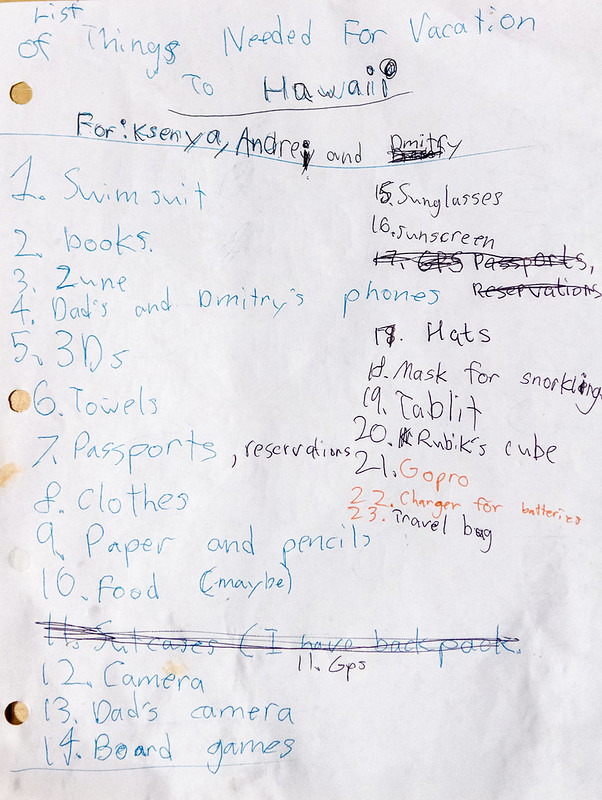 List
of Things Needed For Vacation
To Hawaii
For: Ksenya, Andrej and Dmitry
1. Swimsuit
2. books.
3. Zune
4. Dad's and Dmitry's phones
5. 3Ds
6. Towels
7. Passports, reservations
8. Clothes
9. Paper and pencils
10. Food (maybe)
11. Sutcases (I have backpack.
11. Gps
12. Camera
13. Dad's camera
14. Board games
15. Sunglasses
16. sunscreen
17. GPS Passports,
Reservations
17. Hats
18. Mask for snorkling
19. Tablit
20. Rubik's cube
21. Gopro
22. Charger for batteries
23. Travel bag